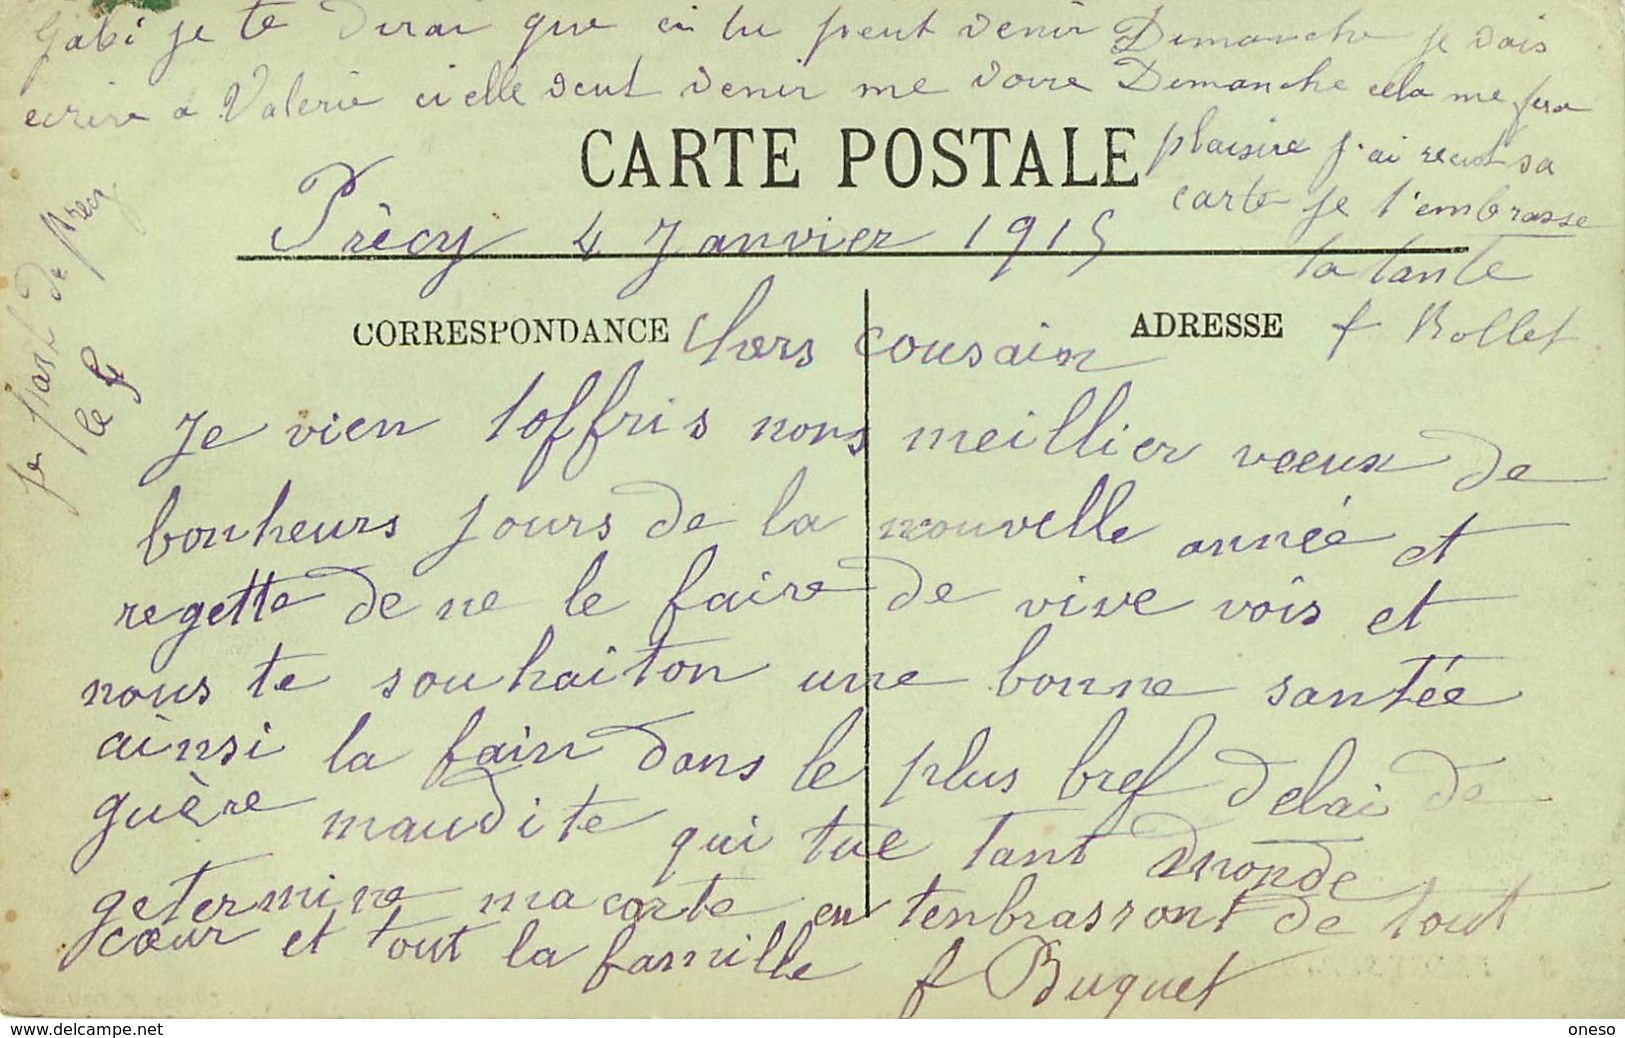 Gabi je te dirai que ci tu peut venir Dimanche je vais
ecrire a Valerie ci elle veut venir me voire Dimanche cela me fera
plaisire j'ai recut sa
carte je l'embrasse
ta tante
f Bollet
CARTE POSTALE
Prècy 4 Janvier 1915
je part de precy
le 5
CORRESPONDANCE
ADRESSE
Chers cousain
Je vien toffris nons meillier voeux de
bonheurs jours de la nouvelle année et
regette de ne le faire de vive vois et
nous te souhaiton une bonne santée
ainsi la fain dans le plus bref delai de
guère maudite qui tue tant dmonde
getermine ma carte en tenbrassront de tout
cœur et tout la famille
f Buquet
www.delcampe.net
oneso